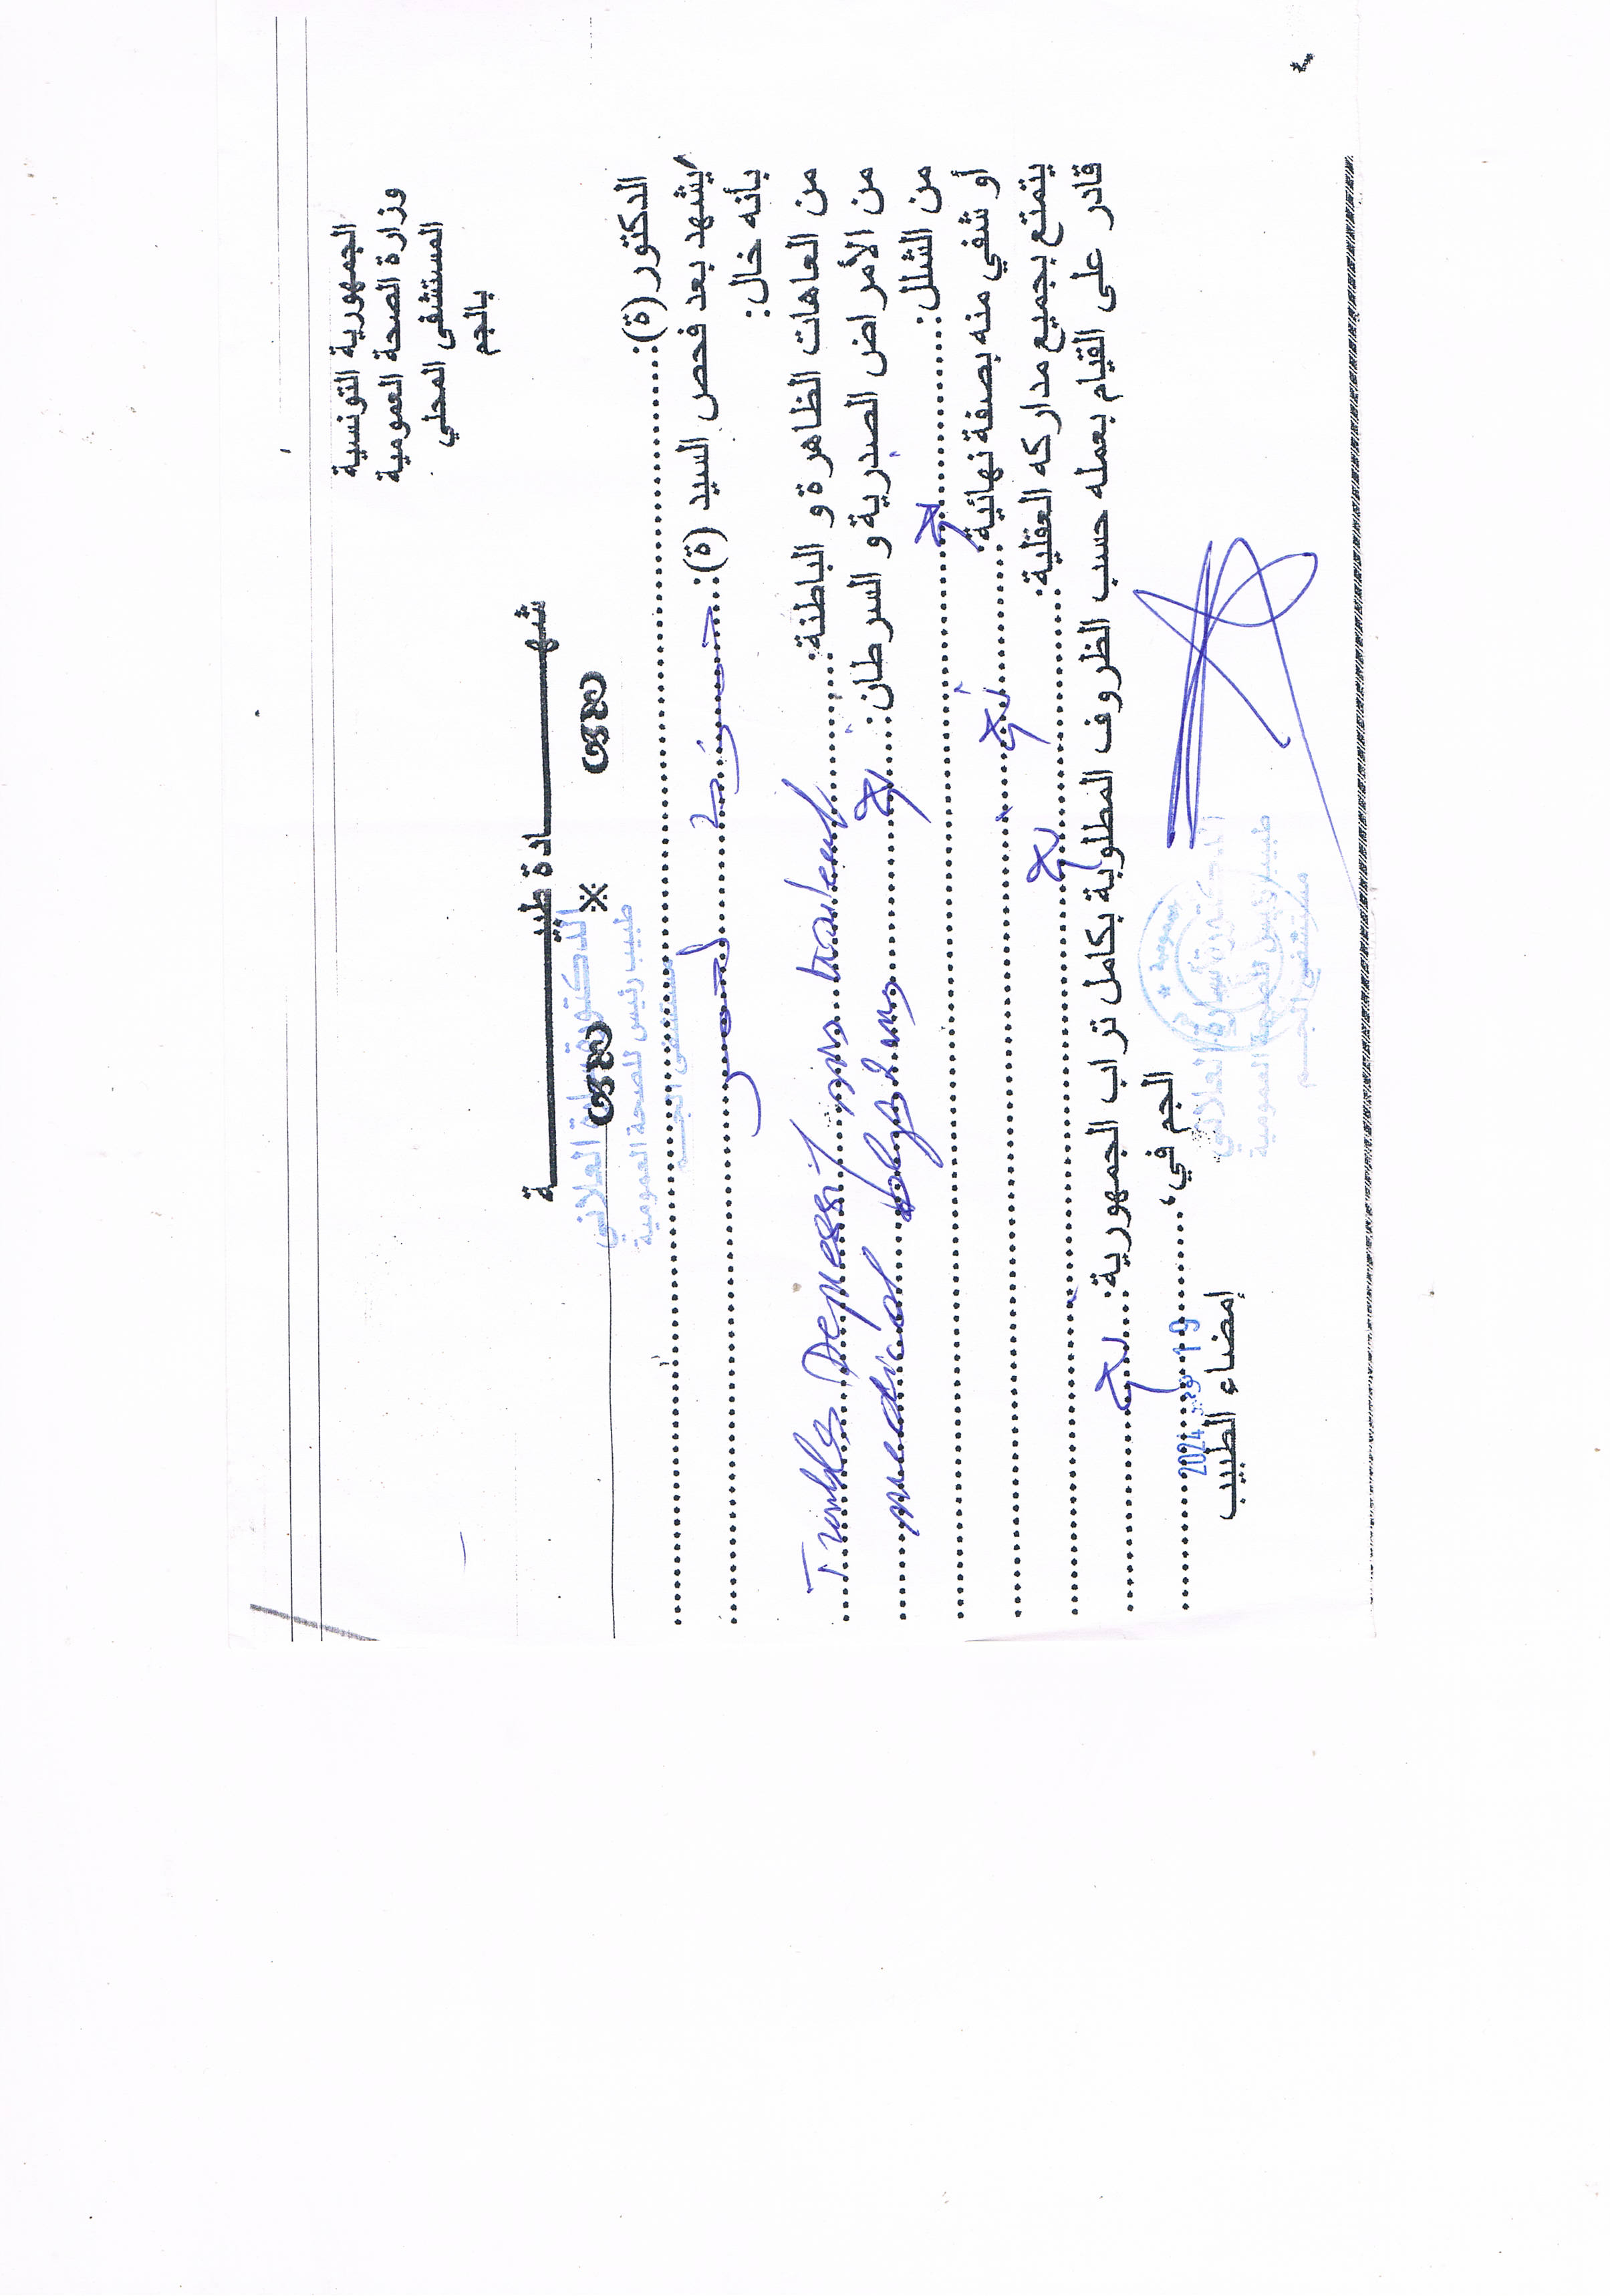 الجمهورية التونسية
وزارة الصحة العمومية
المستشفى المحلي
بالجم
شهـــادة طبيـــة
※
الدكتورة سارة العلاني
طبيب رئيس للصحة العمومية
مستشفى الجـــم
الدكتور(ة):
يشهد بعد فحص السيد (ة):
بأنه خال:
من العاهات الظاهرة و الباطنة: Trouble Depressif sous traitement
من الأمراض الصدرية و السرطان: نعم
medical
من الشلل: نعم
أو شفي منه بصفة نهائية: نعم
يتمتع بجميع مداركه العقلية: نعم
قادر على القيام بعمله حسب الظروف المطلوبة بكامل تراب الجمهورية: نعم
الجم في، 19 2024
إمضاء الطبيب
الدكتورة سارة العلاني
طبيب رئيس للصحة العمومية
مستشفى الجـــم